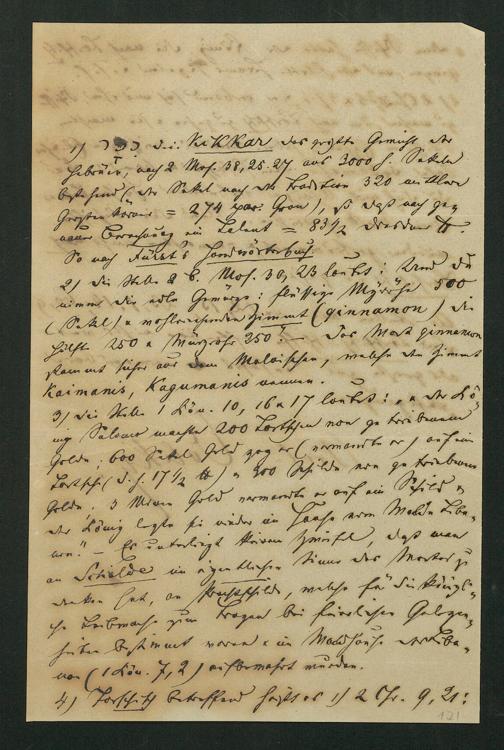 1) ככר d. i. Kikkar das größte Gewicht der
Hebräer, nach 2 Mos. 38, 25-27 aus 3000 h. Sekeln
bestehend (der Sekel nach der Tradition 320 mittlere
Gerstenkörner = 274 par. Gran), so daß nach ge-
nauer Berechnung ein Talent = 83 1/2 Dresdner ℔.
So nach Fürst's Handwörterbuch
2) die Stelle 2 B. Mos. 30, 23 lautet: Und du
nimm die edle Gewürze: flüssige Myrrhe 500
(Sekel) u wohlriechenden Zimmt (qinnamon) die
Hälfte 250 u Würzrohr 250". - Das Wort qinnamon
stammt sicher aus dem Malaischen, welche den Zimmt
Kaimanis, Kagumanis nennen.
3) die Stelle 1 Kön. 10, 16 u 17 lautet: „u der Kö-
nig Salomo machte 200 Tartschen von getriebenem
Golde; 600 Sekel Gold zog er (verwandte er) auf ein
Tartsch (d. h. 17 1/2 ℔) u 300 Schilde von getriebenem
Golde. 3 Minen Gold verwandte er auf ein Schild u
der König legte sie nieder im Hause vom Walde Liba-
non". - Es unterliegt keinem Zweifel, daß man
an Schilde im eigentlichen Sinne des Wortes zu
denken hat, an Prachtschilde, welche für die königli-
che Leibwache zum Tragen bei feierlichen Gelegen-
heiten bestimmt waren u im Waldhause des Liba-
non (1 Kön. 7, 2) aufbewahrt wurden.
4) Tarschisch betreffend heißt es 1) 2 Chr. 9, 21:
121